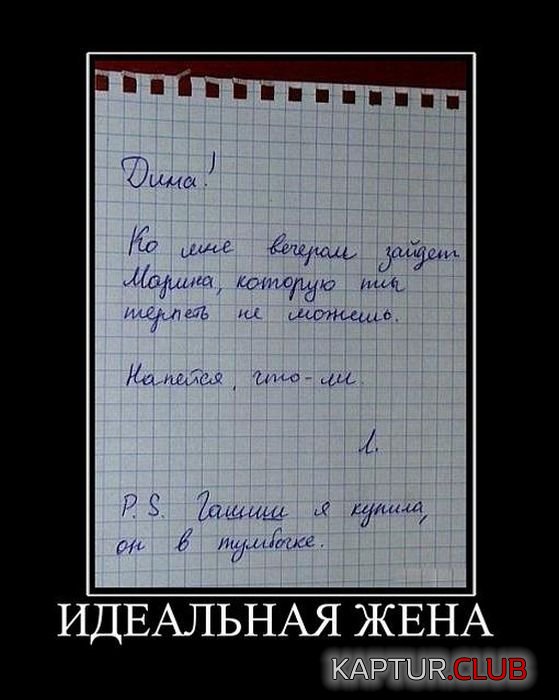 Дима!
Ко мне вечером зайдет
Марина, которую ты
терпеть не можешь.
Напейся, что-ли.
Л.
P.S. Гашиш я купила,
он в тумбочке.
ИДЕАЛЬНАЯ ЖЕНА
KAPTUR.CLUB